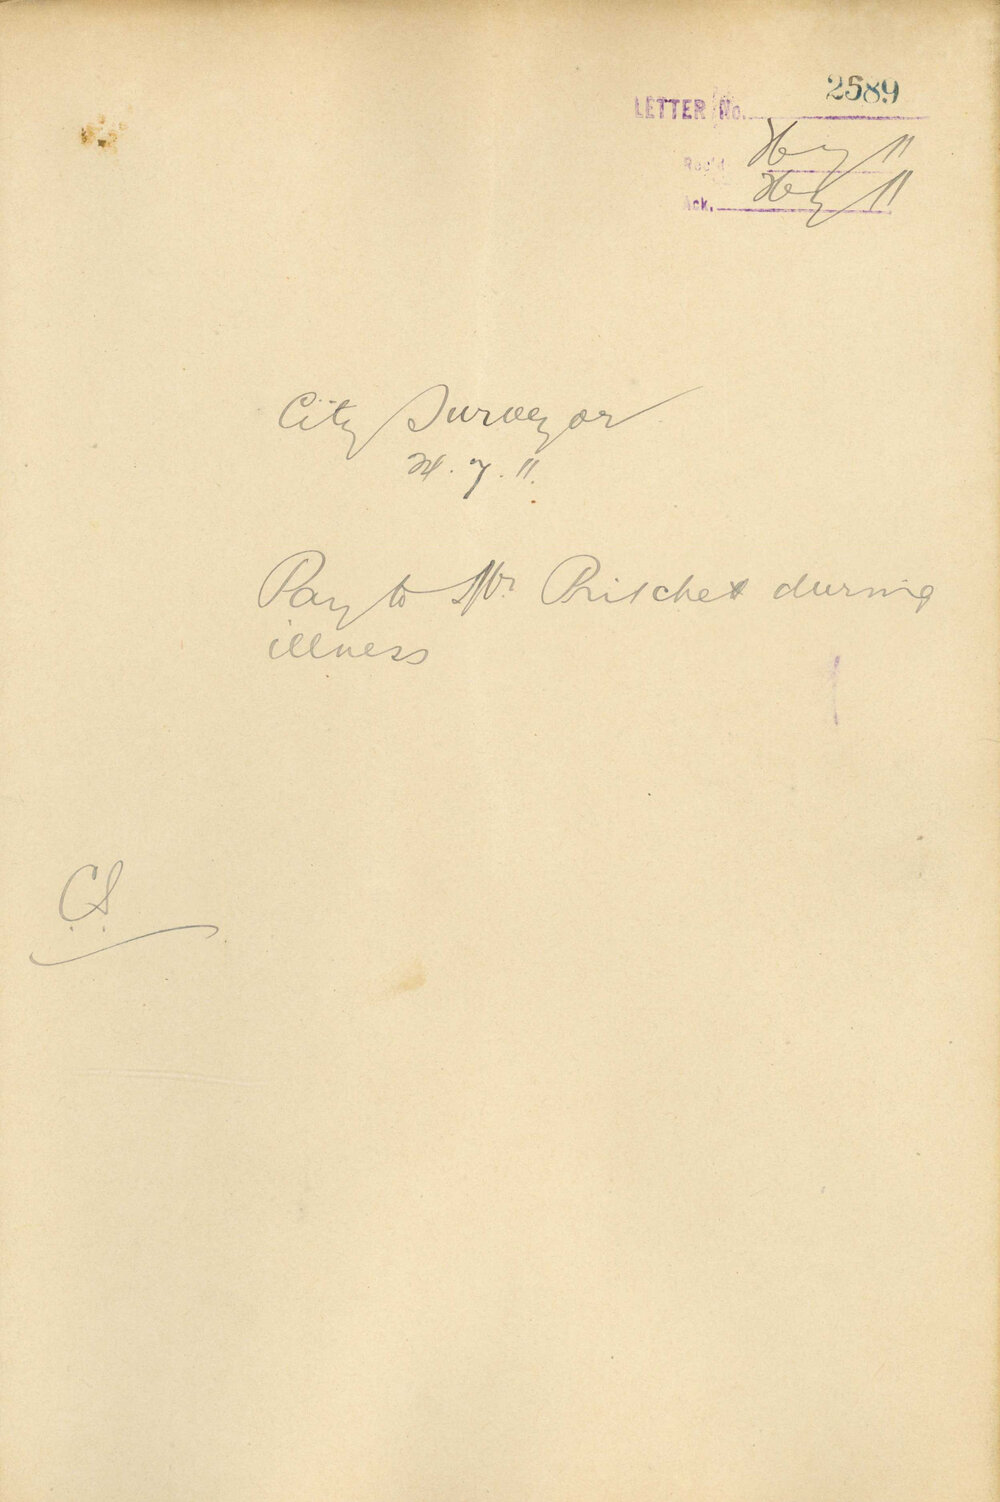 LETTER No. 2589
Rec'd
Ack.
City Surveyor
11.
Pay to Mr Pritchet during
illness
C.S.